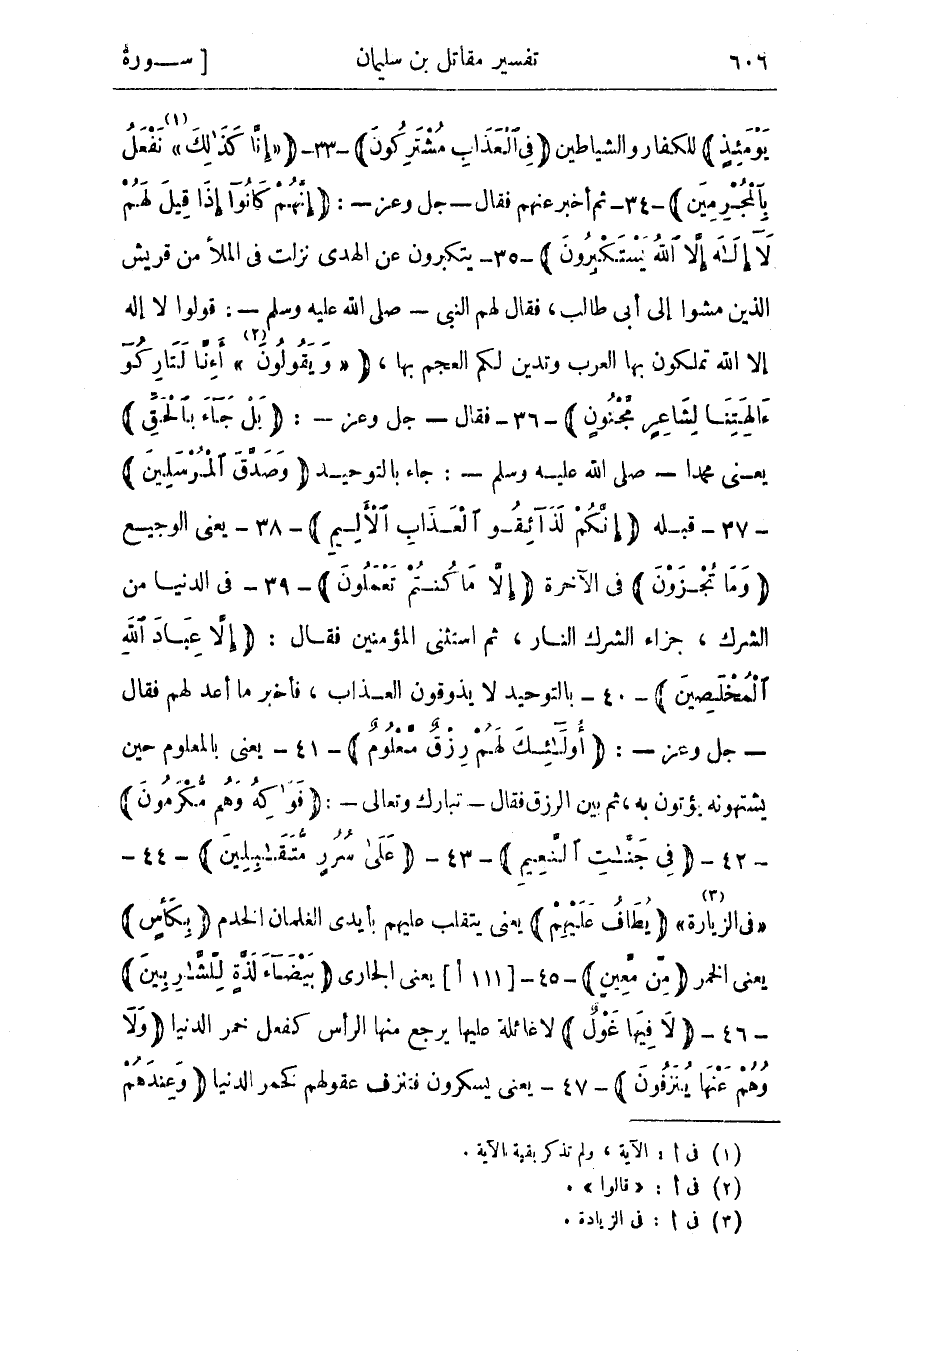 ٦٠٦ تفسير مقاتل بن سليمان [ سـورة
يَوْمَئِذٍ ﴾ للكفار والشياطين ﴿ فِي ٱلْعَذَابِ مُشْتَرِكُونَ ﴾ -٣٣- ﴿ «إِنَّا كَذَٰلِكَ» (١) نَفْعَلُ
بِٱلْمُجْرِمِينَ ﴾ -٣٤- ثم أخبر عنهم فقال — جل وعز — : ﴿ إِنَّهُمْ كَانُوٓا إِذَا قِيلَ لَهُمْ
لَآ إِلَـٰهَ إِلَّا ٱللَّهُ يَسْتَكْبِرُونَ ﴾ -٣٥- يتكبرون عن الهدى نزلت فى الملأ من قريش
الذين مشوا إلى أبى طالب ، فقال لهم النبى — صلى الله عليه وسلم — : قولوا لا إله
إلا الله تملكون بها العرب وتدين لكم العجم بها ، ﴿ « وَيَقُولُونَ » (٢) أَءِنَّا لَتَارِكُوٓ
ءَالِهَتِنَـا لِشَاعِرٍ مَّجْنُونٍ ﴾ -٣٦- فقال — جل وعز — : ﴿ بَلْ جَآءَ بِٱلْحَقِّ ﴾
يعـنى محمدا — صلى الله عليـه وسلم — : جاء بالتوحيـد ﴿ وَصَدَّقَ ٱلْمُرْسَلِينَ ﴾
-٣٧- قبـله ﴿ إِنَّكُمْ لَذَآئِقُـو ٱلْعَـذَابِ ٱلْأَلِـيمِ ﴾ -٣٨- يعنى الوجيـع
﴿ وَمَا تُجْـزَوْنَ ﴾ فى الآخرة ﴿ إِلَّا مَا كُنـتُمْ تَعْمَلُونَ ﴾ -٣٩- فى الدنيـا من
الشرك ، جزاء الشرك النـار ، ثم استثنى المؤمنين فقـال : ﴿ إِلَّا عِبَـادَ ٱللَّهِ
ٱلْمُخْلَصِينَ ﴾ -٤٠- بالتوحيد لا يذوقون العـذاب ، فأخبر ما أعد لهم فقال
— جل وعز — : ﴿ أُولَـٰٓئِـكَ لَهُمْ رِزْقٌ مَّعْلُومٌ ﴾ -٤١- يعنى بالمعلوم حين
يشتهونه يؤتون به ، ثم بين الرزق فقال — تبارك وتعالى — : ﴿ فَوَٰكِهُ وَهُم مُّكْرَمُونَ ﴾
-٤٢- ﴿ فِي جَنَّـٰتِ ٱلنَّعِيمِ ﴾ -٤٣- ﴿ عَلَىٰ سُرُرٍ مُّتَقَـٰبِلِينَ ﴾ -٤٤-
«فى الزيارة» (٣) ﴿ يُطَافُ عَلَيْهِمْ ﴾ يعنى يتقلب عليهم بأيدى الغلمان الخدم ﴿ بِكَأْسٍ ﴾
يعنى الخمر ﴿ مِّن مَّعِينٍ ﴾ -٤٥- [ ١١١ أ ] يعنى الجارى ﴿ بَيْضَآءَ لَذَّةٍ لِّلشَّـٰرِبِينَ ﴾
-٤٦- ﴿ لَا فِيهَا غَوْلٌ ﴾ لا غائلة عليها يرجع منها الرأس كفعل خمر الدنيا ﴿ وَلَا
وَهُمْ عَنْهَا يُنزَفُونَ ﴾ -٤٧- يعنى يسكرون فتنزف عقولهم كخمر الدنيا ﴿ وَعِندَهُمْ
(١) فى أ : الآية ، ولم تذكر بقية الآية .
(٢) فى أ : « قالوا » .
(٣) فى أ : فى الزيادة .